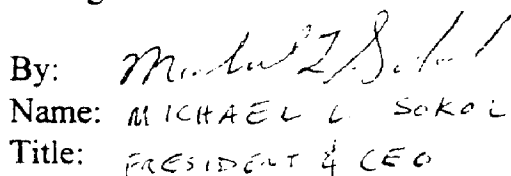 By: Michael L Sokol
Name: MICHAEL L SOKOL
Title: PRESIDENT & CEO